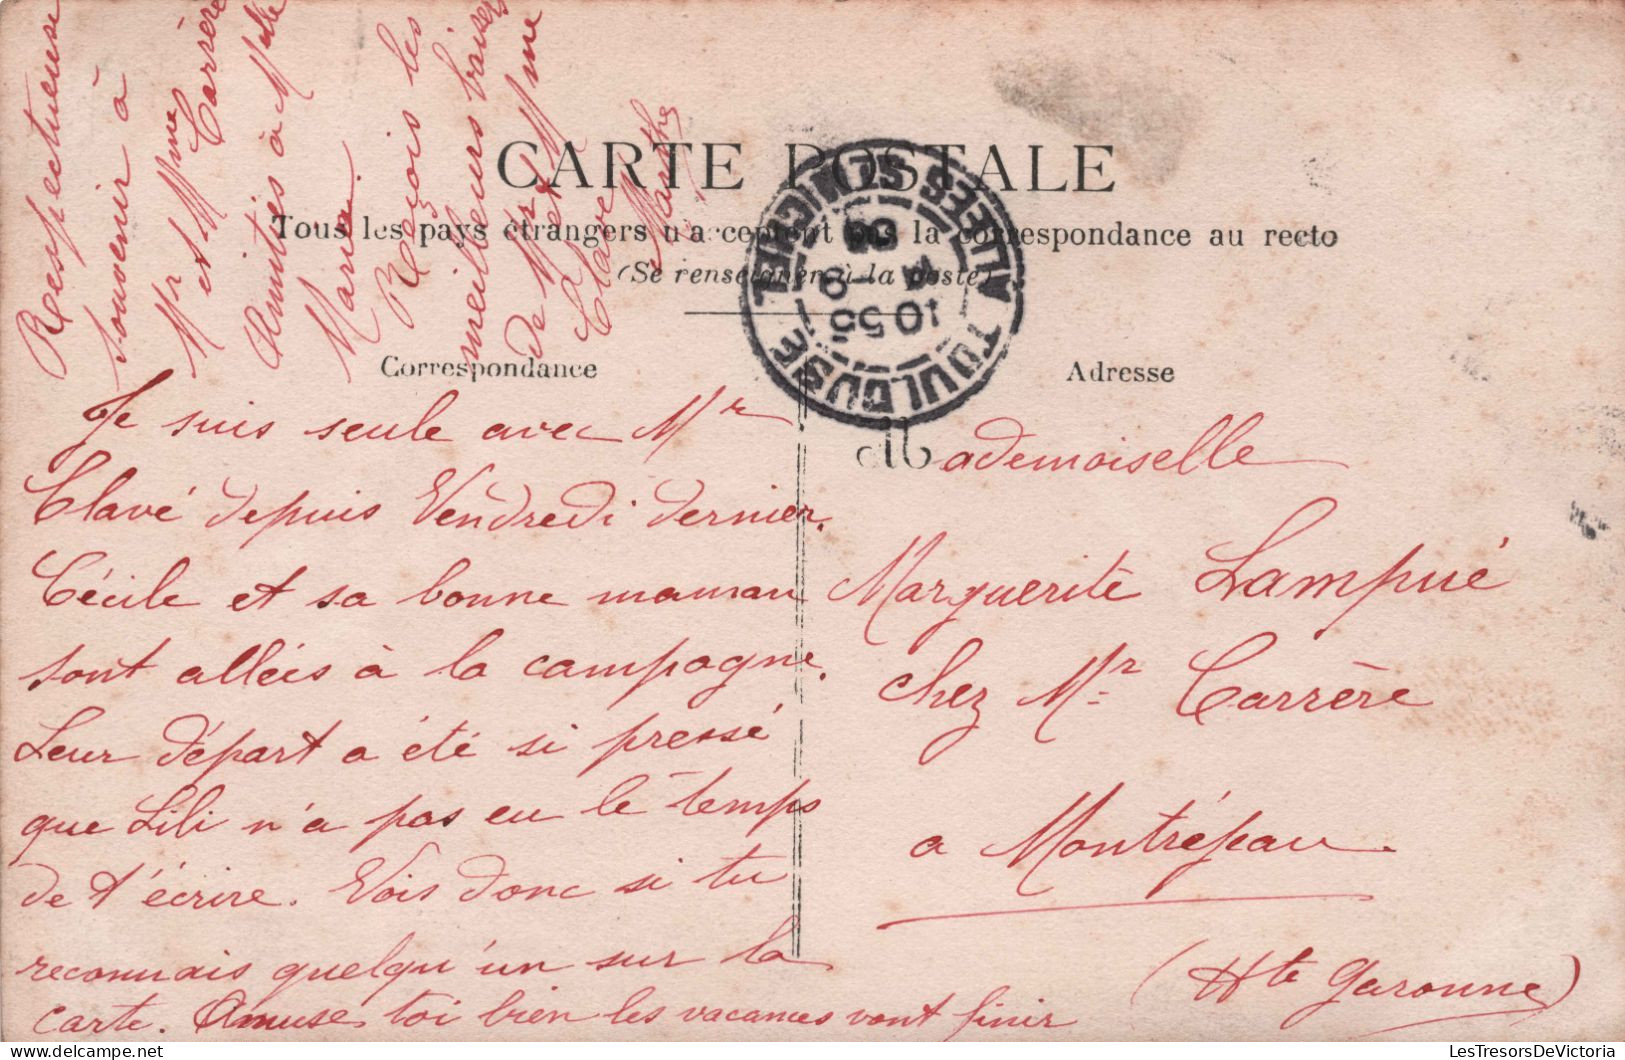 Respectueux
souvenir à
Mr et Mme
Carrère
Amitiés à Melle
Maria.
Reçois les
meilleurs baisers
de Mr et Mme
Clavé
Marthe
CARTE POSTALE
Tous les pays étrangers n'acceptent pas la correspondance au recto
(Se renseigner à la poste)
TOULOUSE
ALLEES ST MICHEL
10 55
4 - 9
Correspondance
Adresse
Je suis seule avec Mr
Clavé depuis Vendredi dernier.
Cécile et sa bonne maman
sont allées à la campagne.
Leur départ a été si pressé
que Lili n'a pas eu le temps
de t'écrire. Vois donc si tu
reconnais quelqu'un sur la
carte. Amuse toi bien les vacances vont finir
Mademoiselle
Marguerite Lampué
chez Mr Carrère
a Montréjeau.
(Hte Garonne)
LesTresorsDeVictoria